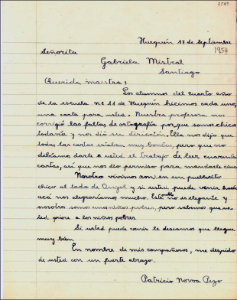 Huequén 17 de septiembre
1954
Señorita
Gabriela Mistral
Santiago
Querida maestra:
Los alumnos del cuarto año
de la escuela Nº 11 de Huequén hicimos cada uno
una carta para usted. Nuestra profesora nos
corrigió las faltas de ortografía porque somos chicos
todavía y nos dio su dirección. Ella nos dijo que
todas las cartas estaban muy bonitas, pero que no
debíamos darle a usted el trabajo de leer cuarenta
cartas, así que nos dio permiso para mandarle cinco.
Nosotros vivimos en un pueblecito
chico al lado de Angol y si usted puede venir hasta
acá nos alegraríamos mucho. Esto no es elegante y
nosotros somos niños pobres, pero sabemos que us-
ted quiere a los niños pobres.
Si usted puede venir le decimos que llegue
muy bien.
En nombre de mis compañeros, me despido
de usted con un fuerte abrazo.
Patricio Novoa